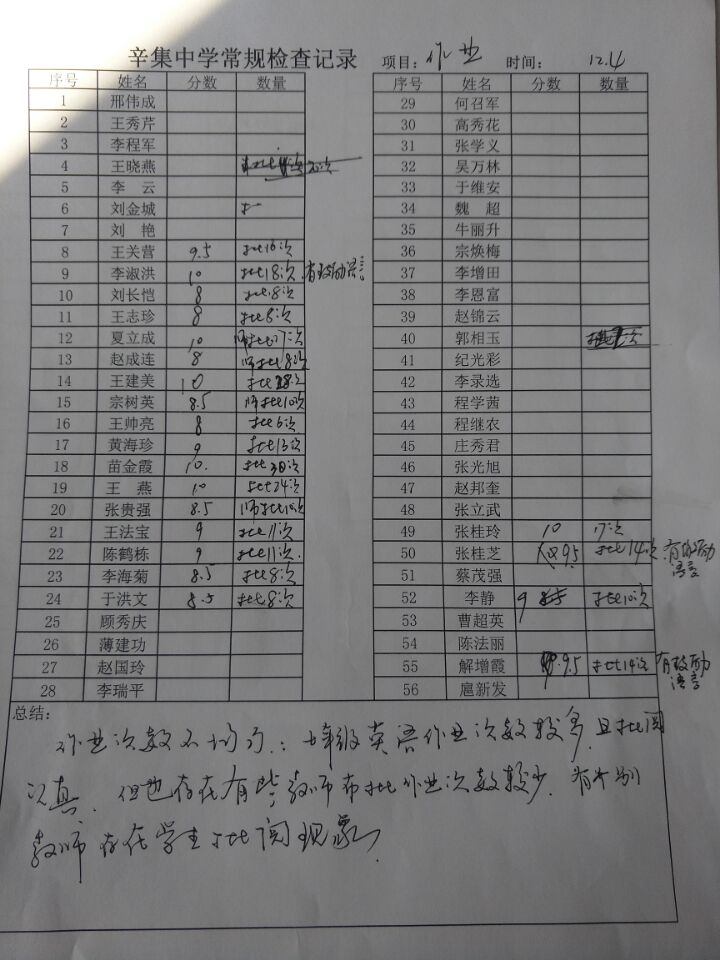 辛集中学常规检查记录 项目：作业 时间： 12.4
序号 姓名 分数 数量 序号 姓名 分数 数量
1 邢伟成 29 何召军
2 王秀芹 30 高秀花
3 李程军 31 张学义
4 王晓燕 32 吴万林
5 李 云 33 于维安
6 刘金城 34 魏 超
7 刘 艳 35 牛丽升
8 王关营 9.5 批16次 36 宗焕梅
9 李淑洪 10 批18次 有鼓励语言 37 李增田
10 刘长恺 8 批8次 38 李恩富
11 王志珍 8 批8次 39 赵锦云
12 夏立成 10 师批17次 40 郭相玉
13 赵成连 8 师批8次 41 纪光彩
14 王建美 10 批28次 42 李录选
15 宗树英 8.5 师批10次 43 程学茜
16 王帅亮 8 批6次 44 程继农
17 黄海珍 9 批13次 45 庄秀君
18 苗金霞 10. 批30次 46 张光旭
19 王 燕 10 批24次 47 赵邦奎
20 张贵强 8.5 师批10次 48 张立武
21 王法宝 9 批11次 49 张桂玲 10 17次
22 陈鹤栋 9 批11次. 50 张桂芝 9.5 批14次 有鼓励语言
23 李海菊 8.5 批8次 51 蔡茂强
24 于洪文 8.5 批8次 52 李静 9 批10次
25 顾秀庆 53 曹超英
26 薄建功 54 陈法丽
27 赵国玲 55 解增霞 9.5 批14次 有鼓励语言
28 李瑞平 56 扈新发
总结：
作业次数不均匀：七年级英语作业次数较多，且批阅
认真，但也存在有些教师布批作业次数较少，有个别
教师存在学生批阅现象。